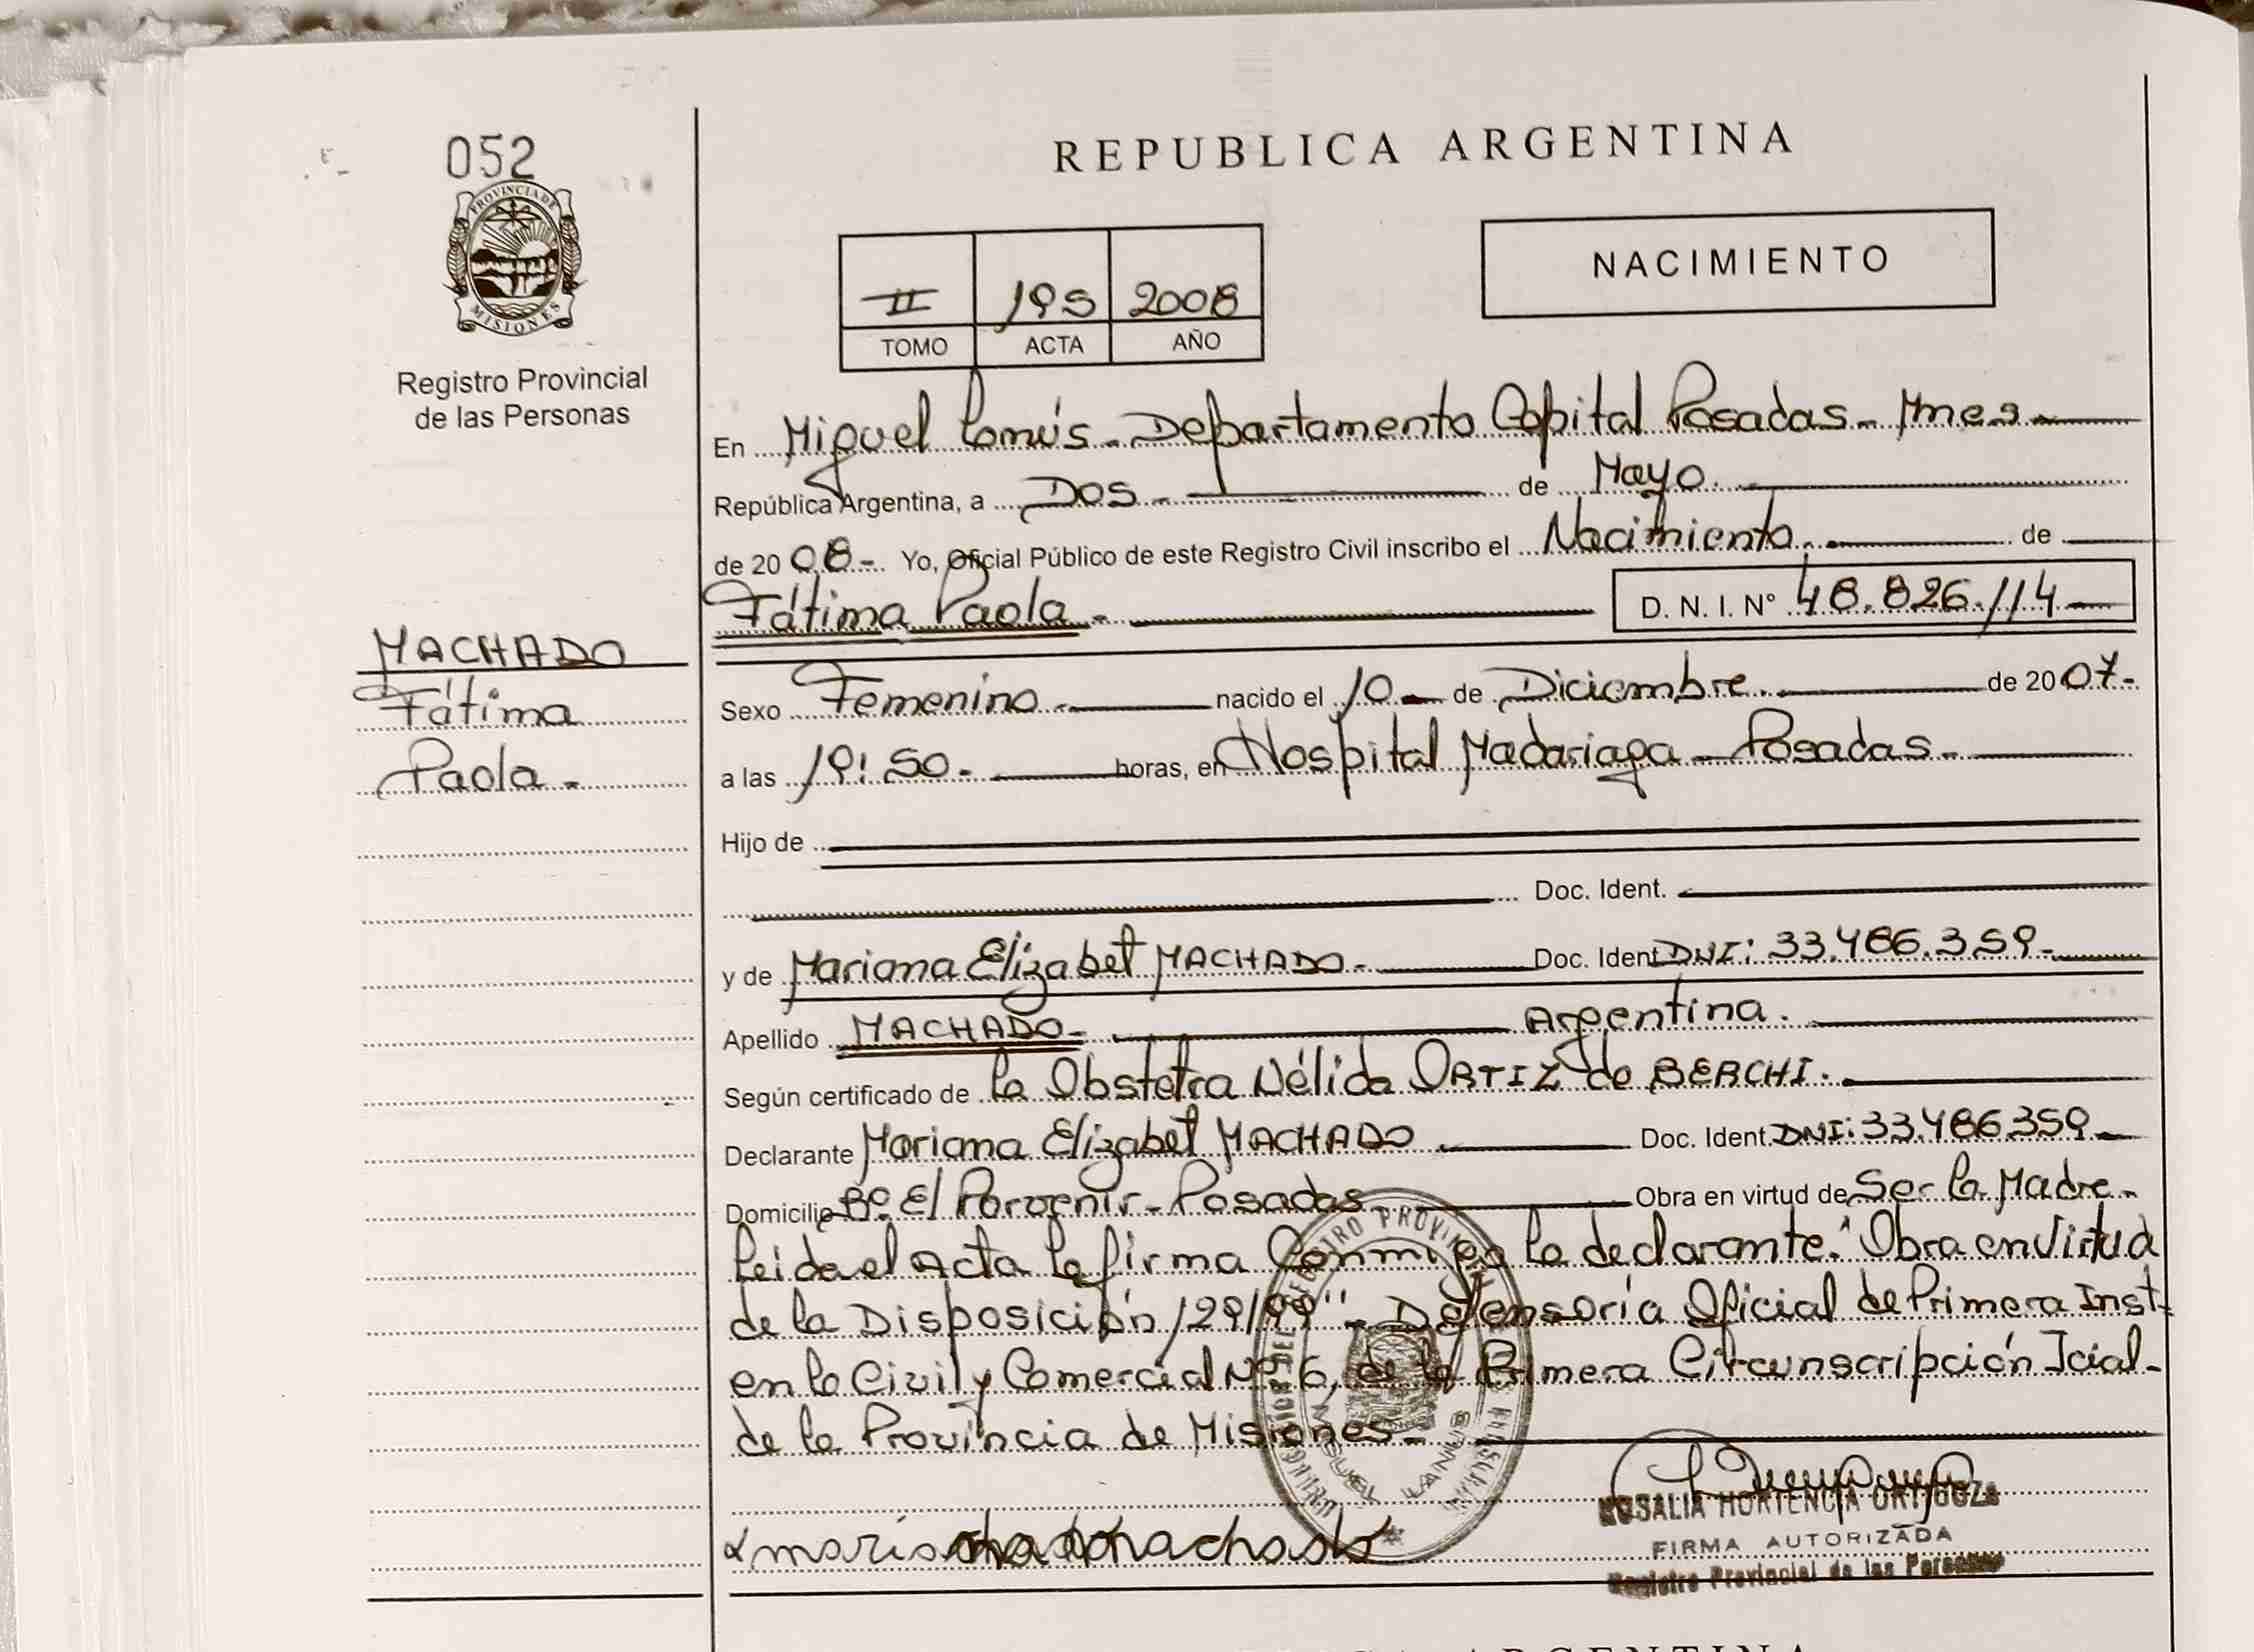 052
PROVINCIA DE
MISIONES
Registro Provincial
de las Personas
MACHADO
Fátima
Paola.-
REPUBLICA ARGENTINA
NACIMIENTO
II 195 2008
TOMO ACTA AÑO
En Miguel Lanús.- Departamento Capital Posadas.- Mnes.-
República Argentina, a Dos.- de Mayo.
de 2008.- Yo, Oficial Público de este Registro Civil inscribo el Nacimiento. de
Fátima Paola.- D. N. I. Nº 48.826.114
Sexo Femenino.- nacido el 10 de Diciembre. de 2007.-
a las 19:50.- horas, en Hospital Madariaga - Posadas.-
Hijo de
Doc. Ident.
y de Mariana Elizabet MACHADO.- Doc. Ident DNI: 33.486.359.-
Apellido MACHADO.- Argentina.
Según certificado de la Obstetra Nélida ORTIZ de BERCHI.
Declarante Mariana Elizabet MACHADO. Doc. Ident. DNI: 33.486.359.-
Domicilio Bº. El Porvenir - Posadas. Obra en virtud de Ser la Madre.-
Leida el Acta la firma Conmigo la declarante. "Obra en Virtud
de la Disposición 129/99".- Defensoría Oficial de Primera Inst.
en lo Civil y Comercial Nº 6, de la Primera Circunscripción Jcial.-
de la Provincia de Misiones.-
MIGUEL LANUS
ROSALIA HORTENCIA ORTIGOZA
FIRMA AUTORIZADA
Registro Provincial de las Personas